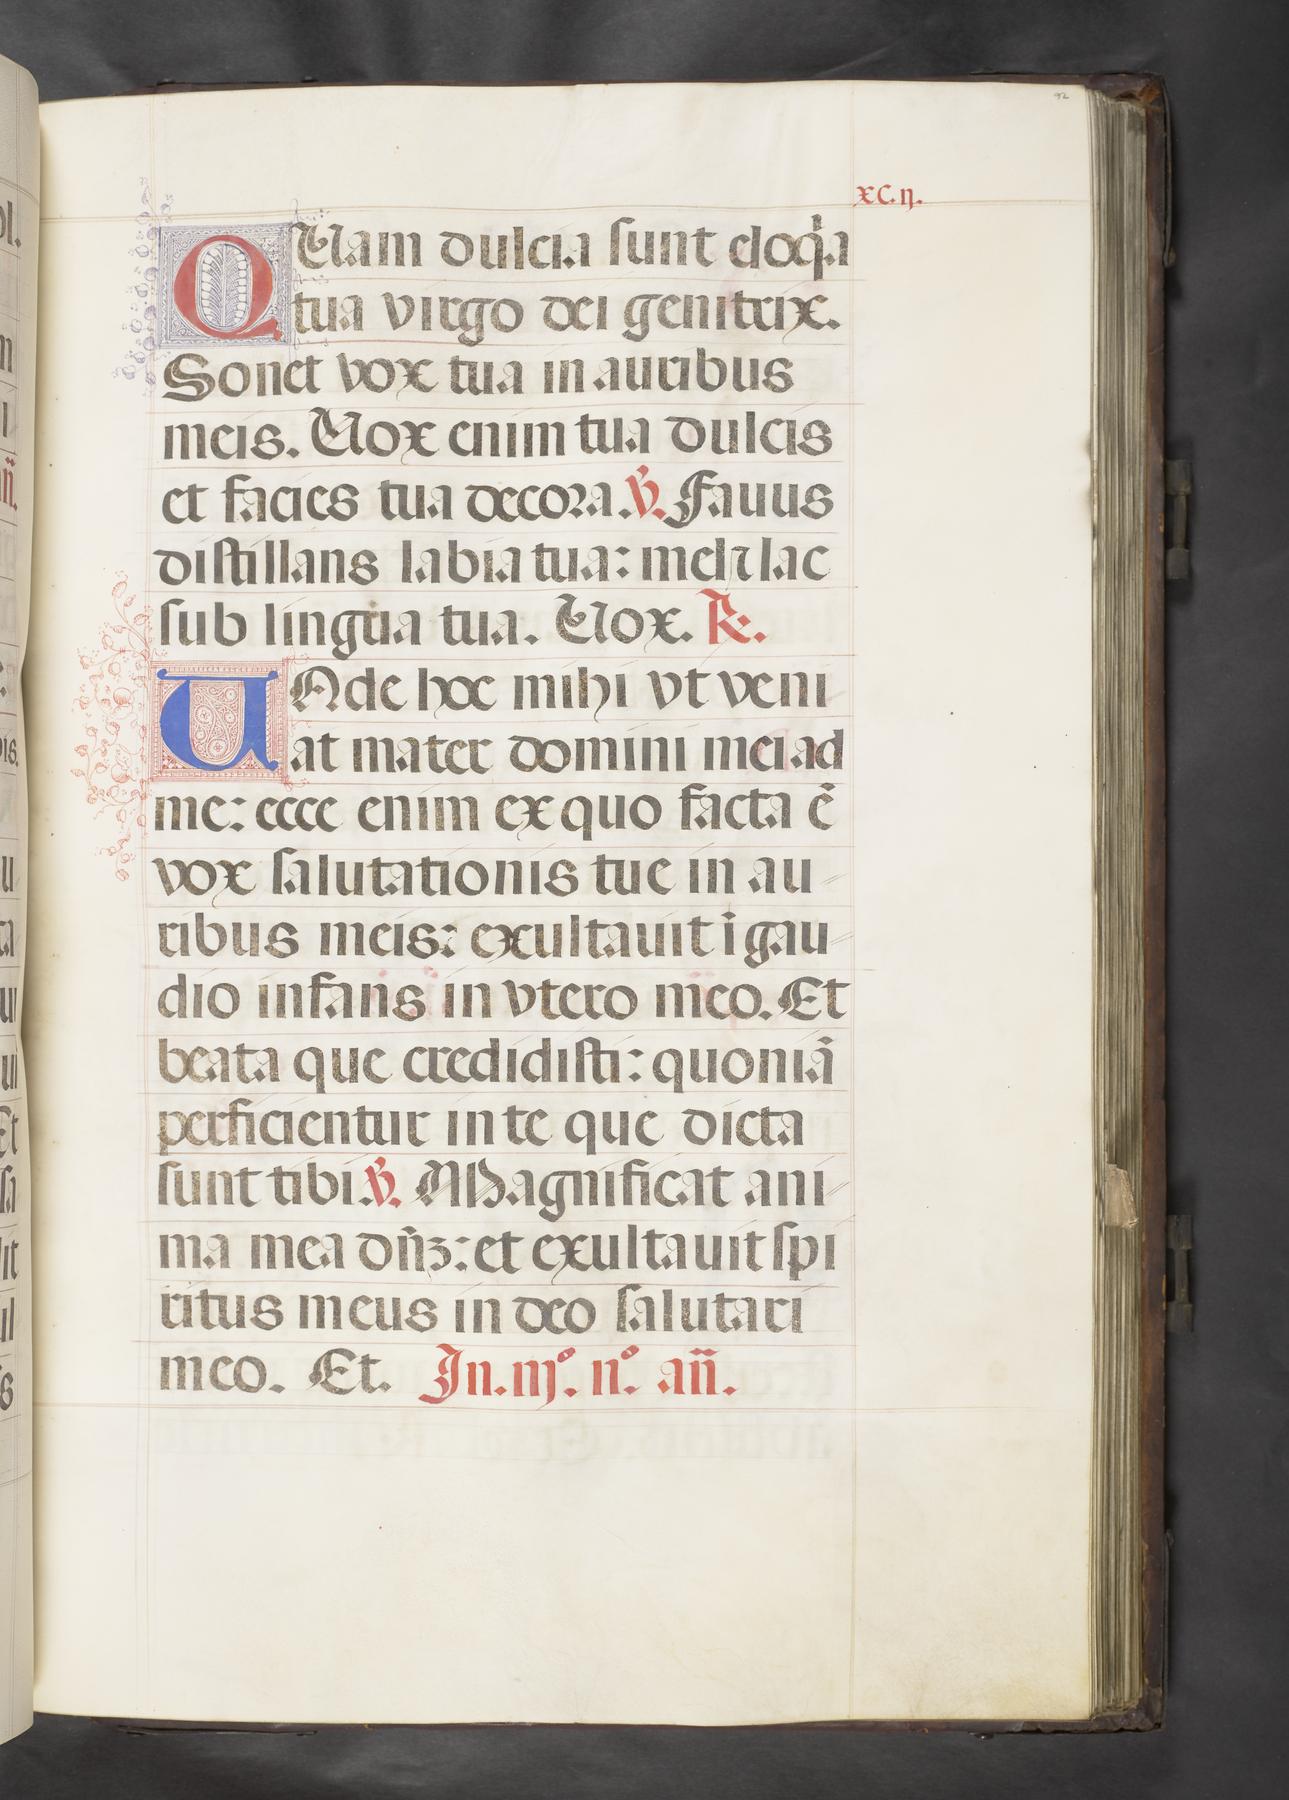 92
xc.ij.
QUam dulcia sunt eloq̇a
tua virgo dei genitrix.
Sonet vox tua in auribus
meis. Uox enim tua dulcis
et facies tua decora. ℣. Fauus
distillans labia tua: mel ⁊ lac
sub lingua tua. Uox. ℟.
UNde hoc mihi vt veni
at mater domini mei ad
me: ecce enim ex quo facta ē
vox salutationis tue in au
ribus meis: exultauit i gau
dio infans in vtero meo. Et
beata que credidisti: quoniā
perficientur in te que dicta
sunt tibi. ℣. MAgnificat ani
ma mea dn̄ʒ: et exultauit spi
ritus meus in deo salutari
meo. Et. In. iijº. nº. an̄.